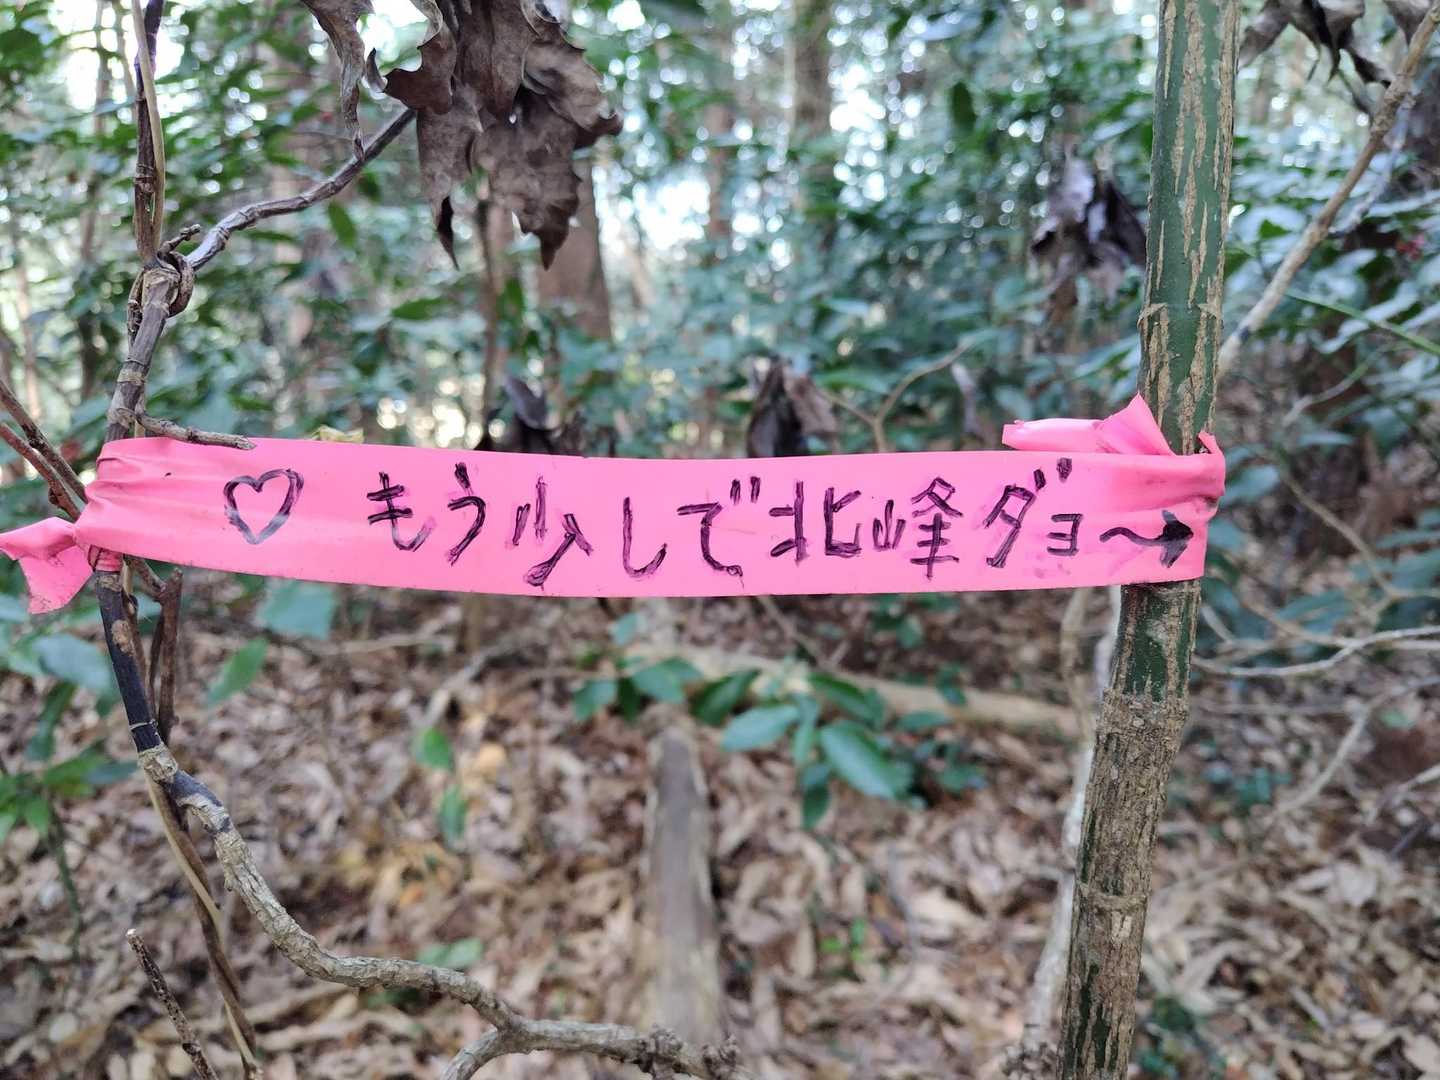 ♡ もう少しで北峰ダョ〜→